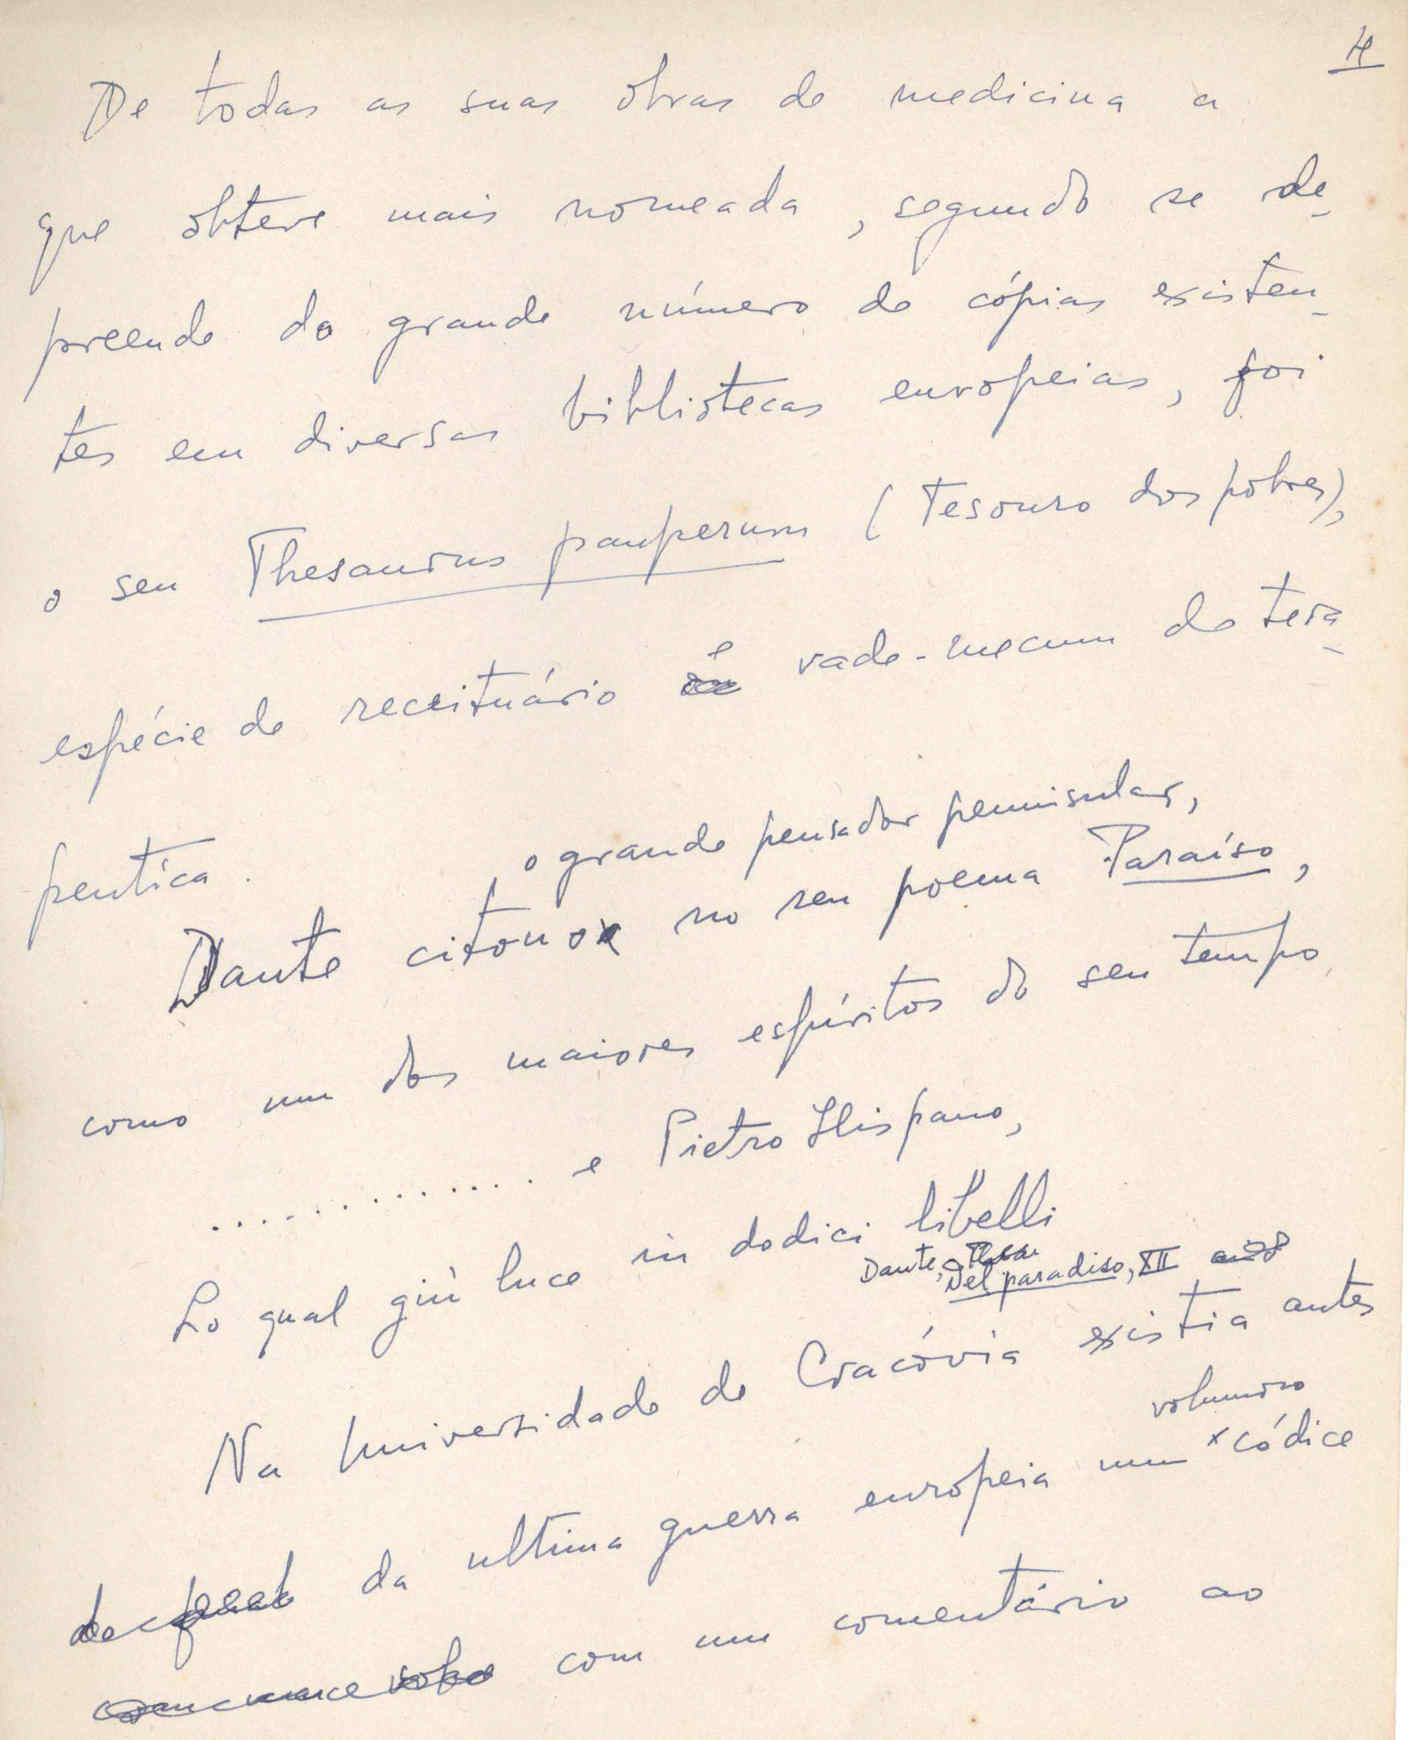 4
De todas as suas obras de medicina a
que obteve mais nomeada, segundo se de-
preende do grande número de cópias existen-
tes em diversas bibliotecas europeias, foi
o seu Thesaurus pauperum (Tesouro dos pobres),
espécie de receituário e vade-mecum de tera-
peutica.
, o grande pensador peninsular,
Dante citou no seu poema Paraíso,
como um dos maiores espíritos do seu tempo
. . . . . . . . . . . . . e Pietro Hispano,
Lo qual giù luce in dodici libelli
Dante, Del paradiso, XII
Na Universidade de Cracóvia existia antes
volumoso
da ultima guerra europeia um x códice
com um comentário ao